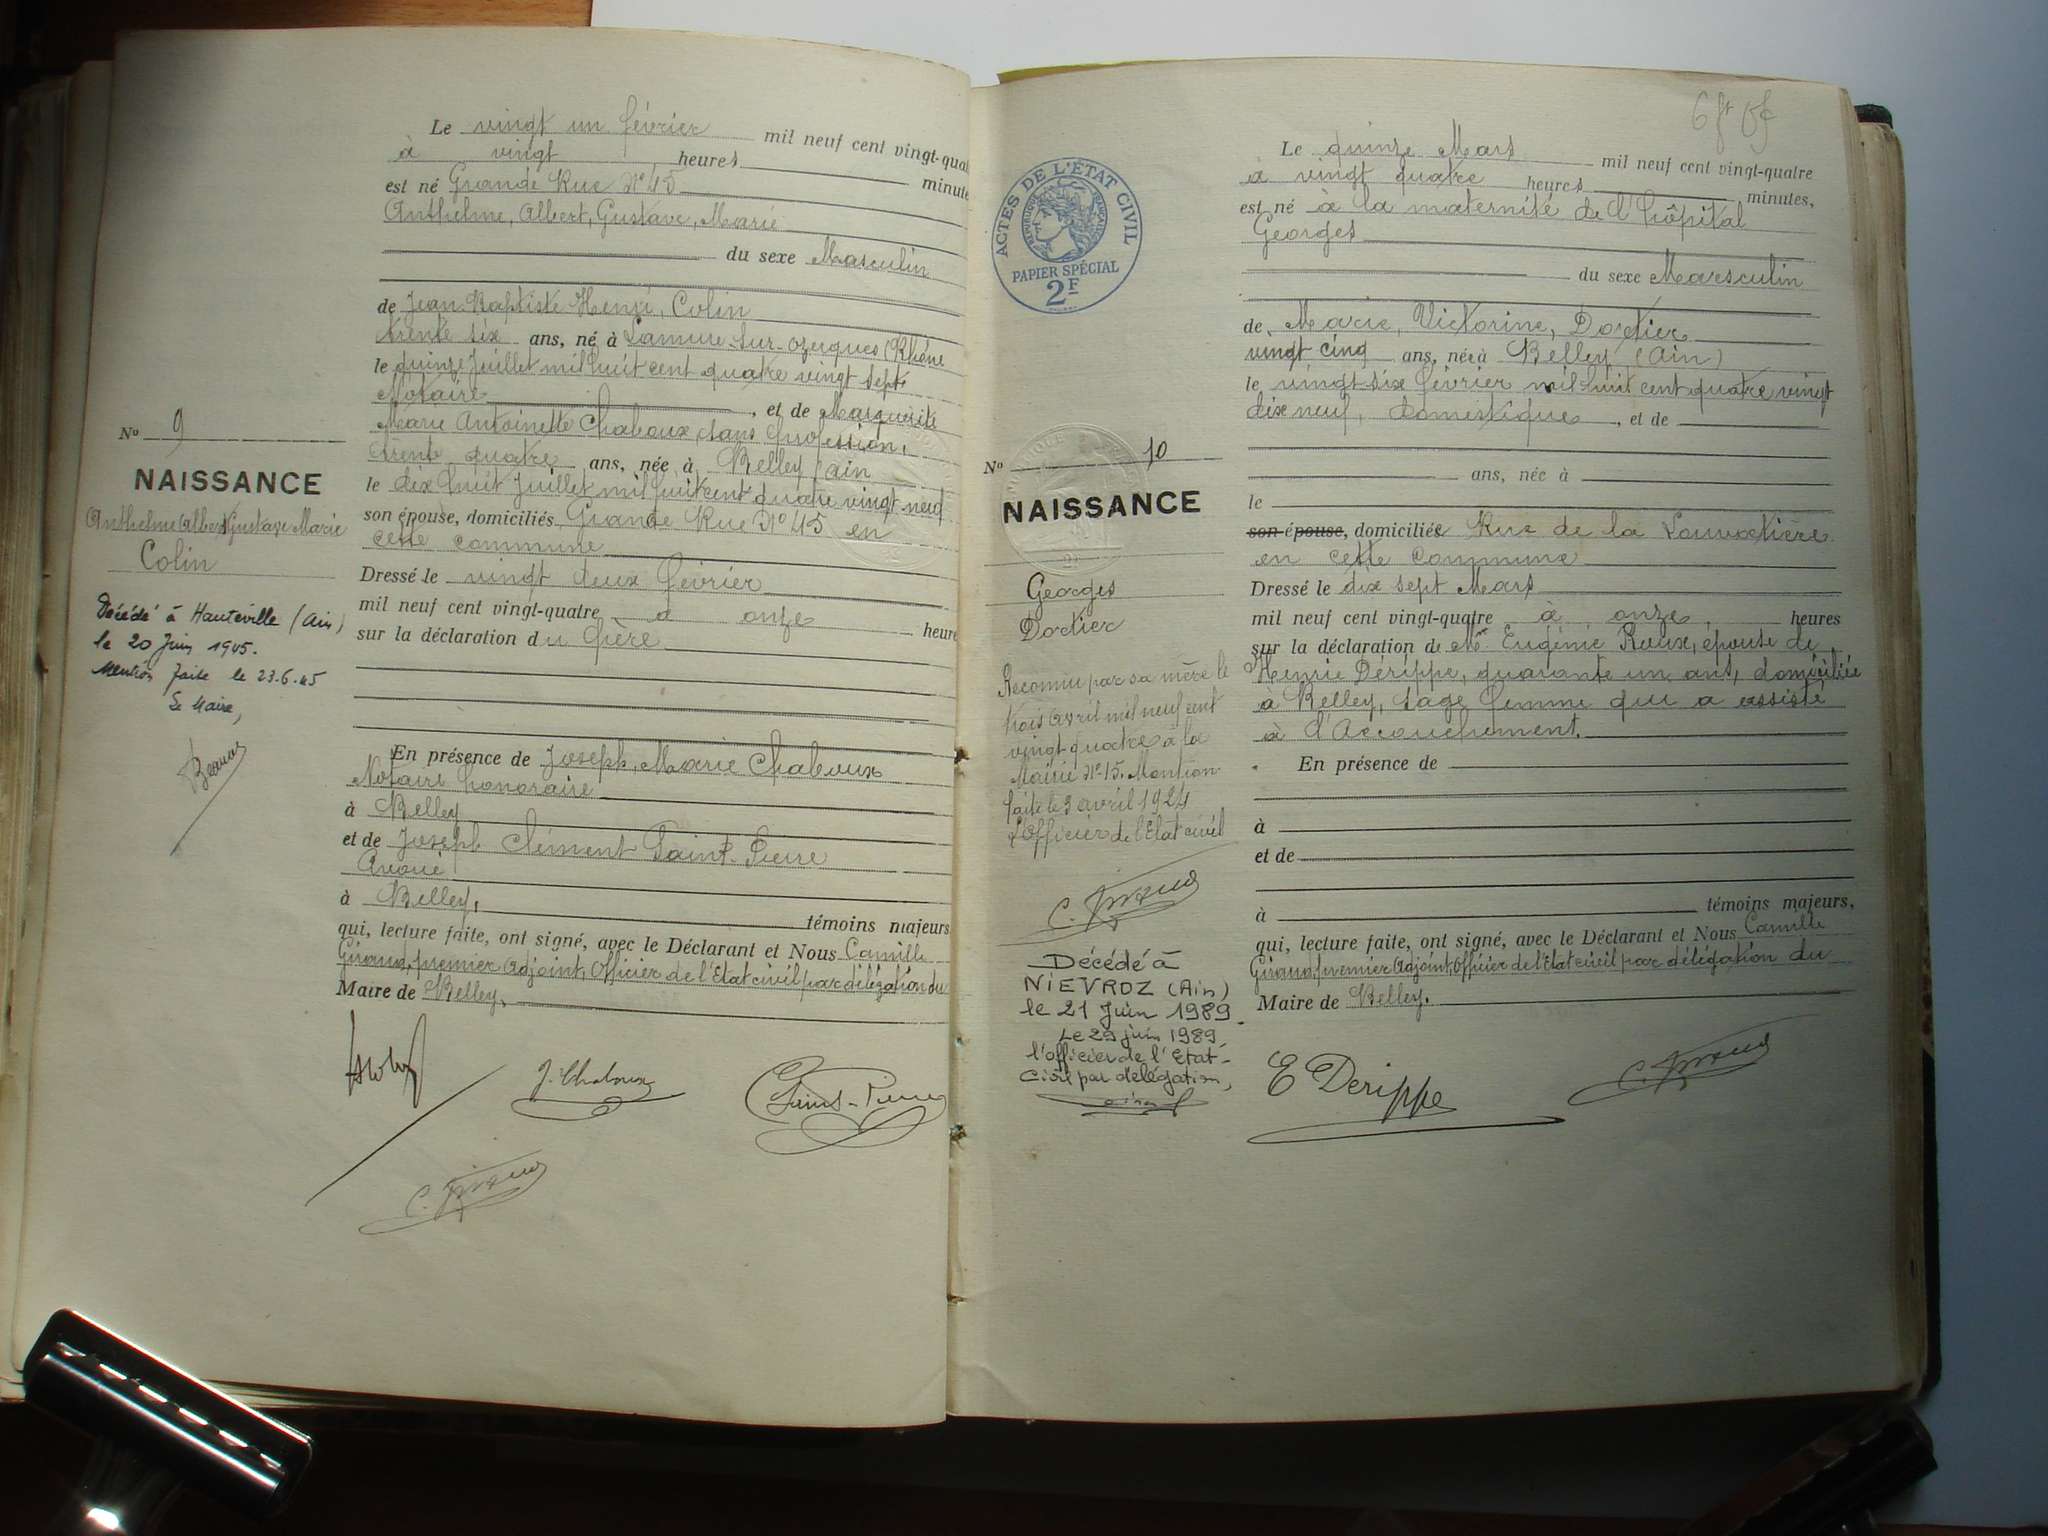 Le vingt un février mil neuf cent vingt-quat
à vingt heures minute
est né Grande Rue N° 45
Anthelme, Albert, Gustave, Marie
du sexe Masculin
de Jean Baptiste Henri, Colin
trente six ans, né à Lamure-sur-Azergues (Rhône
le quinze Juillet mil huit cent quatre vingt sept
Notaire, et de Marguerite
Marie Antoinette Chaboux, sans profession,
trente quatre ans, née à Belley (ain
le dix huit Juillet mil huit cent quatre vingt neuf
son épouse, domiciliés Grande Rue N° 45 en
cette commune
Dressé le vingt deux février
mil neuf cent vingt-quatre à onze heure
sur la déclaration du Père
En présence de Joseph, Marie Chaboux
Notaire honoraire
à Belley
et de Joseph Clément Saint-Pierre
Avoué
à Belley, témoins majeurs
qui, lecture faite, ont signé, avec le Déclarant et Nous Camille
Giraud, premier Adjoint, Officier de l'Etat civil par délégation du
Maire de Belley.
J. Chaboux
Saint-Pierre
C. Giraud
N° 9
NAISSANCE
Anthelme Albert Gustave Marie
Colin
Décédé à Hauteville (Ain)
le 20 Juin 1945.
Mention faite le 23.6.45
Le Maire,
6 ft
ACTES DE L'ÉTAT CIVIL
RÉPUBLIQUE FRANÇAISE
PAPIER SPÉCIAL
2F
Le quinze Mars mil neuf cent vingt-quatre
à vingt quatre heures minutes,
est né à la maternité de l'hôpital
Georges
du sexe Maresculin
de Marie, Victorine, Dortier
vingt cinq ans, née à Belley (Ain)
le vingt six février mil huit cent quatre vingt
dix neuf, Domestique, et de
ans, née à
le
son épouse, domiciliée Rue de la Louvatière
en cette commune
Dressé le dix sept Mars
mil neuf cent vingt-quatre à onze heures
sur la déclaration de Me Eugénie Roux, épouse de
Henri Dérippe, quarante un ans, domiciliée
à Belley, sage femme qui a assisté
à l'Accouchement.
En présence de
à
et de
à témoins majeurs,
qui, lecture faite, ont signé, avec le Déclarant et Nous Camille
Giraud, premier Adjoint, Officier de l'Etat civil par délégation du
Maire de Belley.
E Derippe
C. Giraud
N° 10
NAISSANCE
Georges
Dortier
Reconnu par sa mère le
trois avril mil neuf cent
vingt quatre à la
Mairie N° 15. Mention
faite le 3 avril 1924
L'Officier de l'Etat civil
C. Giraud
Décédé à
NIEVROZ (Ain)
le 21 Juin 1989.
Le 29 juin 1989,
l'officier de l'Etat-
Civil par délégation,